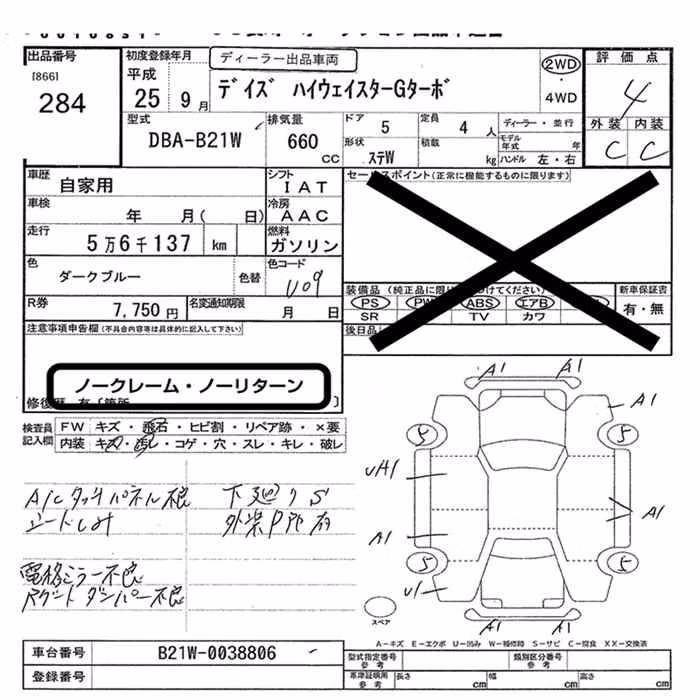 出品番号
[866]
284
初度登録年月
平成
25 9月
ディーラー出品車両
デイズ ハイウェイスターGターボ
2WD
・
4WD
評価点
4
外装 内装
C C
型式
DBA-B21W
排気量
660
cc
ドア 5
定員 4人
ディーラー・並行
形状 ステW
積載 kg
モデル年式 年
ハンドル 左・右
車歴 自家用
シフト IAT
車検 年 月( 日)
冷房 AAC
走行 5万6千137 km
燃料 ガソリン
色 ダークブルー 色替
色コード U09
R券 7,750円
名変通知期限 月 日
セールスポイント(正常に機能するものに限ります)
新車保証書
有・無
PS
ABS
エアB
SR
TV
カワ
後日品
注意事項申告欄(不具合内容等は具体的に記入して下さい)
ノークレーム・ノーリターン
検査員
記入欄
FW キズ・飛石・ヒビ割・リペア跡・×要
内装 キズ・汚レ・コゲ・穴・スレ・キレ・破レ
A/Cタッチパネル不良
シートしみ
下廻りS
外装P跡有
電格ミラー不良
Rゲートダンパー不良
A1 A1
A1
5 5
UA1
A1
A1
5 5
U1
スペア
A1 A1
A-キズ E-エクボ U-凹み W-補修跡 S-サビ C-腐食 XX-交換済
車台番号 B21W-0038806
登録番号
型式指定番号 参考
類別区分番号 参考
車庫証明用 参考
長さ cm 幅 cm 高さ cm